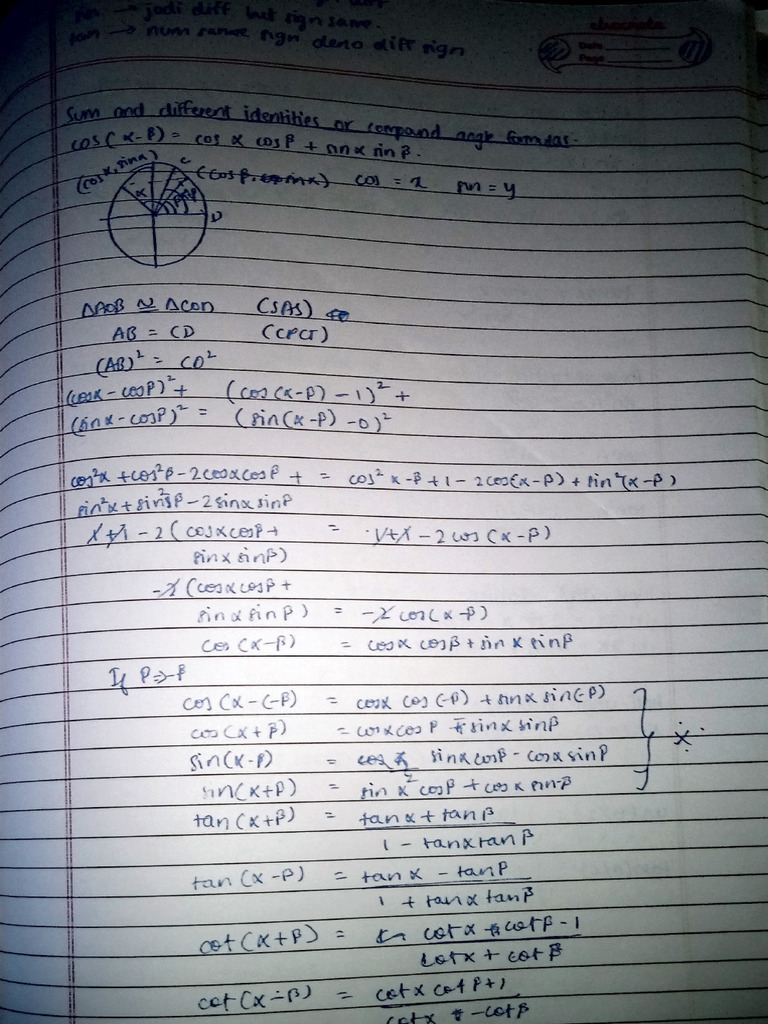 sin → jodi diff but sign same.
tan → num same sign deno diff sign
Date
Page
Sum and different identities or compound angle formulas.
cos(α-β) = cos α cosβ + sinα sinβ.
(cosα, sinα) C (cosβ, sinα) cos = x sin = y
α β D
ΔAOB ≅ ΔCOD (SAS)
AB = CD (CPCT)
(AB)² = CD²
(cosα - cosβ)² + (cos(α-β) - 1)² +
(sinα - cosβ)² = (sin(α-β) - 0)²
cos²α + cos²β - 2cosαcosβ + = cos² α-β + 1 - 2cos(α-β) + sin²(α-β)
sin²α + sin²β - 2sinα sinβ
1+1 - 2(cosαcosβ + = 1+1 - 2cos(α-β)
sinα sinβ)
-2(cosαcosβ +
sinα sinβ) = -2cos(α-β)
cos(α-β) = cosα cosβ + sinα sinβ
If β⇒-β
cos(α-(-β) = cosα cos(-β) + sinα sin(-β)
cos(α+β) = cosαcosβ - sinα sinβ
sin(α-β) = sinαcosβ - cosα sinβ
sin(α+β) = sinα cosβ + cosα sinβ
tan(α+β) = tanα + tanβ
1 - tanαtanβ
tan(α-β) = tanα - tanβ
1 + tanα tanβ
cot(α+β) = cotα cotβ - 1
cotα + cotβ
cot(α-β) = cotα cotβ + 1
cotα - cotβ